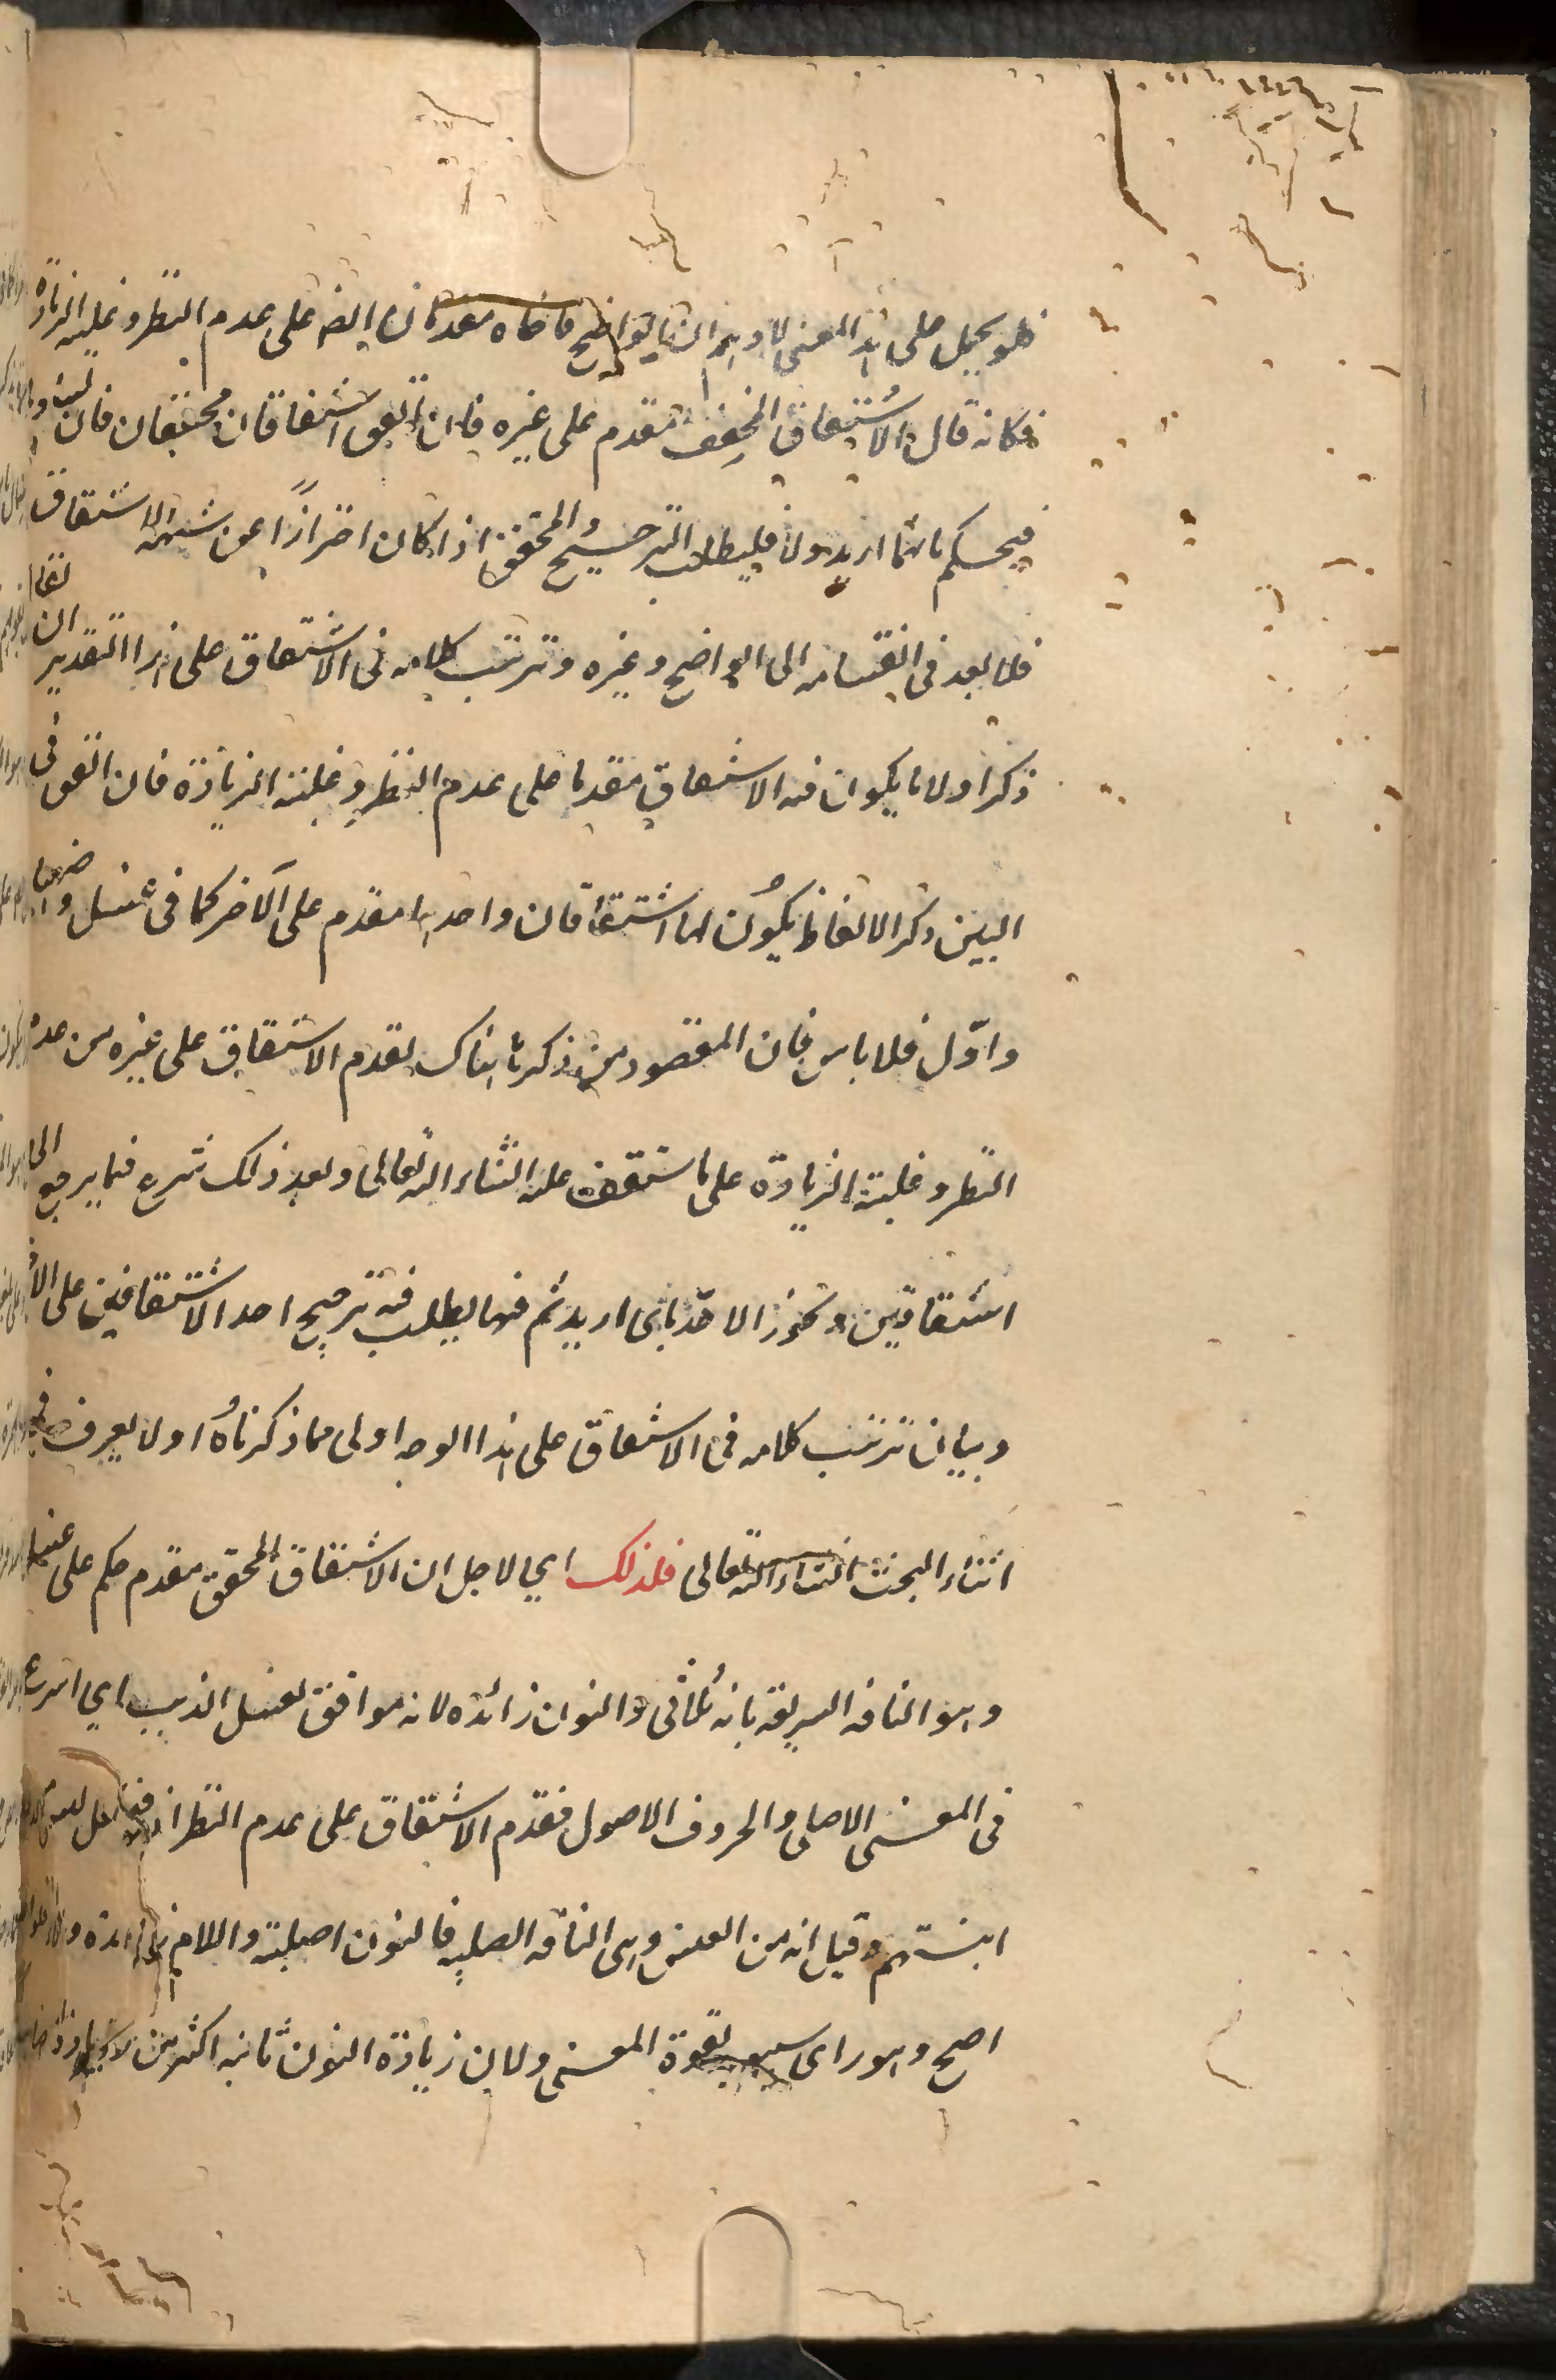 فلو يحمل على هذا المعنى لا وهم ان الواضح ما ضاه مقدمان ايضا على عدم النظر وغلبة الزيادة
فكانه قال والاشتقاق المحقق مقدم على غيره فان اتفق اشتقاقان محققان فان
فيحكم بانما اريد ولا فليطلب الترجيح والمحقق اذا كان احترازا عن شبهة الاشتقاق
فلا بعد فى انقسامه الى الواضح وغيره وترتيب كلامه فى الاشتقاق على هذا التقدير ان
ذكر اولا ما يكون فيه الاشتقاق مقدما على عدم النظر وغلبة الزيادة فان اتفق فى
البين ذكر الالفاظ يكون لها اشتقاقان واحدها مقدم على الآخر كما فى عنسل و
واوّل فلا باس فان المقصود من ذكرها هناك تقدم الاشتقاق على غيره من عدم
النظر وغلبة الزيادة على ما ستقف عليه انشاء الله تعالى وبعد ذلك شرع فيما يرجع الى
اشتقاقين ويجوز الاخذ باى اريد ثم فيما يطلب فيه ترجيح احد الاشتقاقين على الآ
وبيان ترتيب كلامه فى الاشتقاق على هذا الوجه اولى مما ذكرناه اولا يعرف فى
اثناء البحث انشاء الله تعالى فلذلك اي لاجل ان الاشتقاق المحقق مقدم حكم على عنسل
وهو الناقة السريعة بانه ثلاثى والنون زائدة لانه موافق لعسل الذيب اي اسرع
فى المعنى الاصلى والحروف الاصول فقدم الاشتقاق على عدم النظر اذ فنعل ليس من
ابنيتهم وقيل انه من العنس وهى الناقة الصلبة فالنون اصلية واللام زائدة
اصح وهو راى سيبويه لقوة المعنى ولان زيادة النون ثانية اكثر من